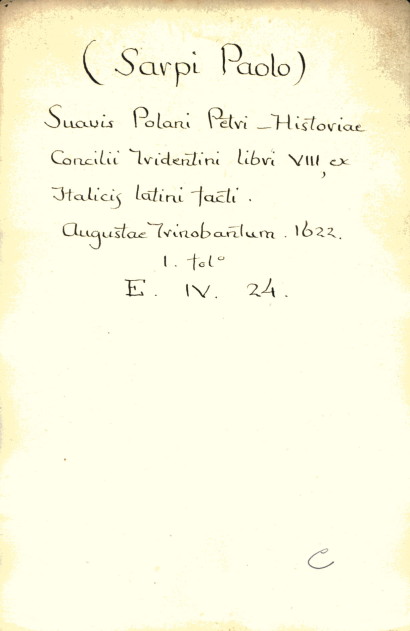 (Sarpi Paolo)
Suavis Polani Petri - Historiae
Concilii Tridentini libri VIII, ex
Italicis latini facti.
Augustae Trinobantum. 1622.
1. fol°
E. IV. 24.
C